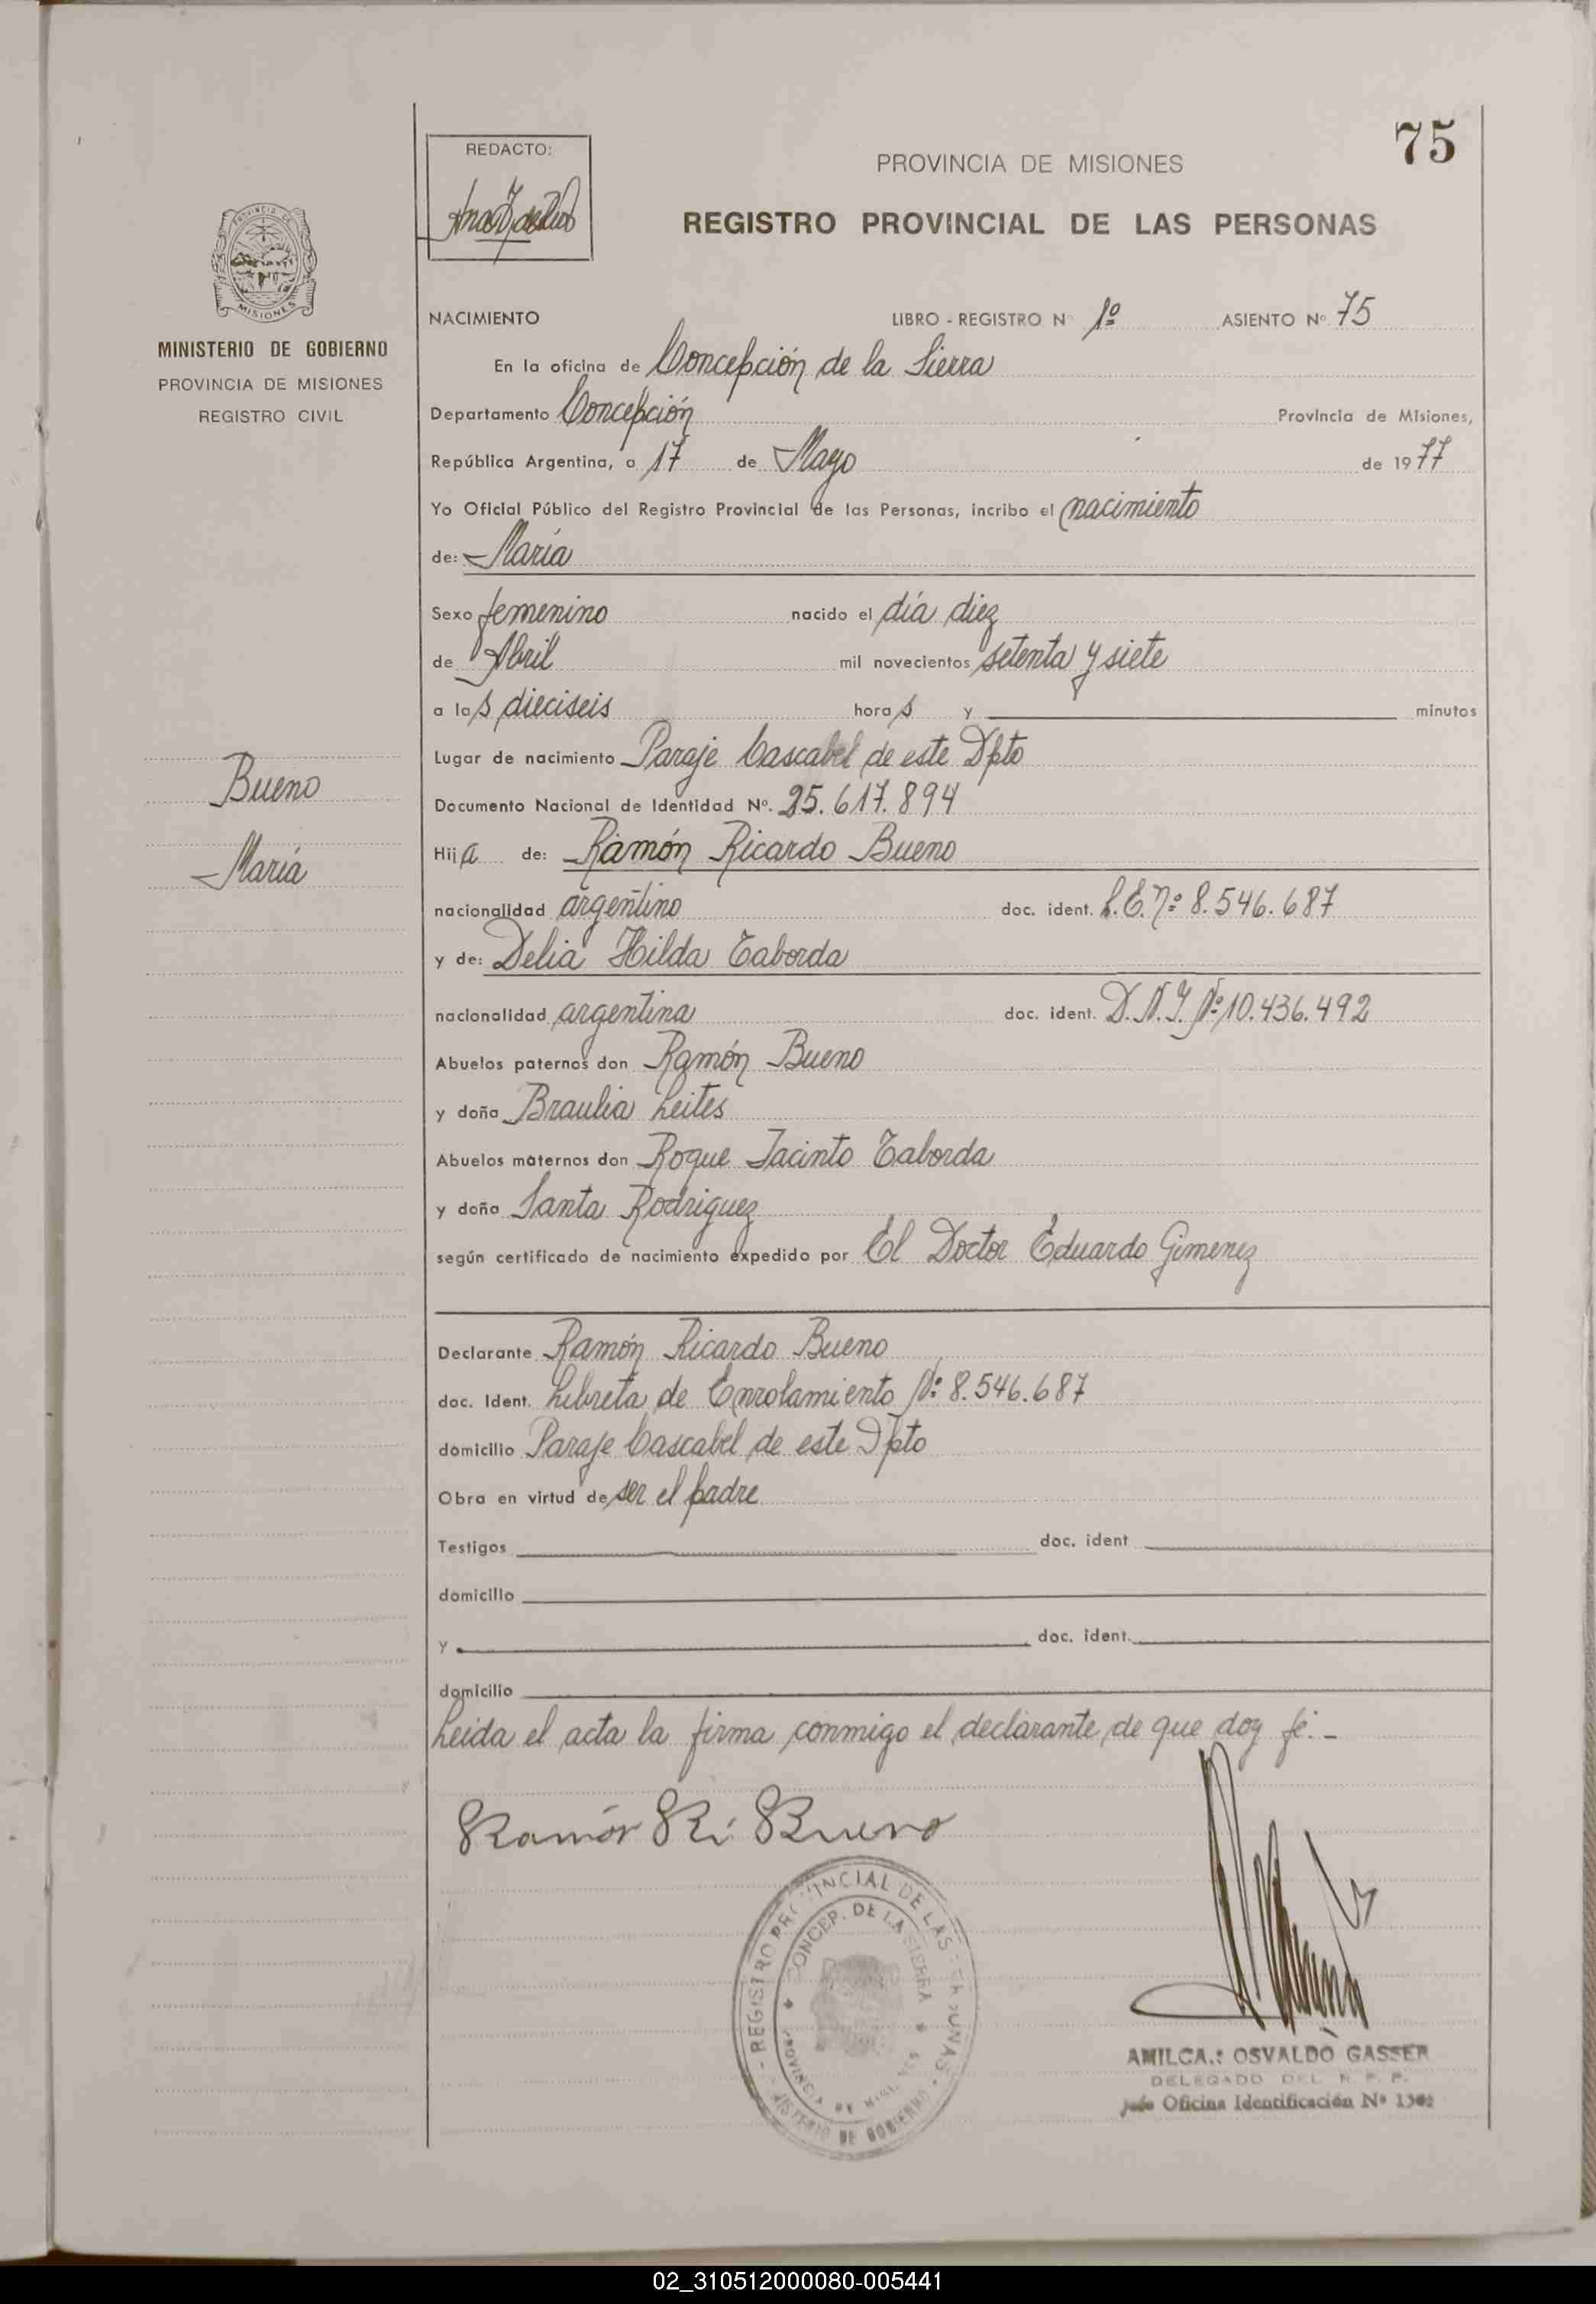 75
REDACTO:
PROVINCIA DE MISIONES
REGISTRO PROVINCIAL DE LAS PERSONAS
MISIONES
MINISTERIO DE GOBIERNO
PROVINCIA DE MISIONES
REGISTRO CIVIL
NACIMIENTO LIBRO - REGISTRO Nº 1º ASIENTO Nº 75
En la oficina de Concepción de la Sierra
Departamento Concepción Provincia de Misiones,
República Argentina, a 17 de Mayo de 1977
Yo Oficial Público del Registro Provincial de las Personas, incribo el nacimiento
de: María
Sexo femenino nacido el día diez
de Abril mil novecientos setenta y siete
a las dieciseis horas y minutos
Lugar de nacimiento Paraje Cascabel de este Dpto
Documento Nacional de Identidad Nº. 25.617.894
Bueno
María
Hija de: Ramón Ricardo Bueno
nacionalidad argentino doc. ident. L.E. nº 8.546.687
y de: Delia Hilda Taborda
nacionalidad argentina doc. ident. D.N.I. Nº 10.436.492
Abuelos paternos don Ramón Bueno
y doña Braulia Leites
Abuelos maternos don Roque Jacinto Taborda
y doña Santa Rodriguez
según certificado de nacimiento expedido por El Doctor Eduardo Gimenez
Declarante Ramón Ricardo Bueno
doc. Ident. Libreta de Enrolamiento Nº 8.546.687
domicilio Paraje Cascabel de este Dpto
Obra en virtud de ser el padre
Testigos doc. ident
domicilio
y doc. ident.
domicilio
Leida el acta la firma conmigo el declarante de que doy fé.-
Ramón Ri Bueno
REGISTRO PROVINCIAL DE LAS PERSONAS
CONCEP. DE LA SIERRA
PROVINCIA DE MISIONES
MINISTERIO DE GOBIERNO
AMILCAR OSVALDO GASSER
DELEGADO DEL R. P. P.
Jefe Oficina Identificación Nº
02_310512000080-005441